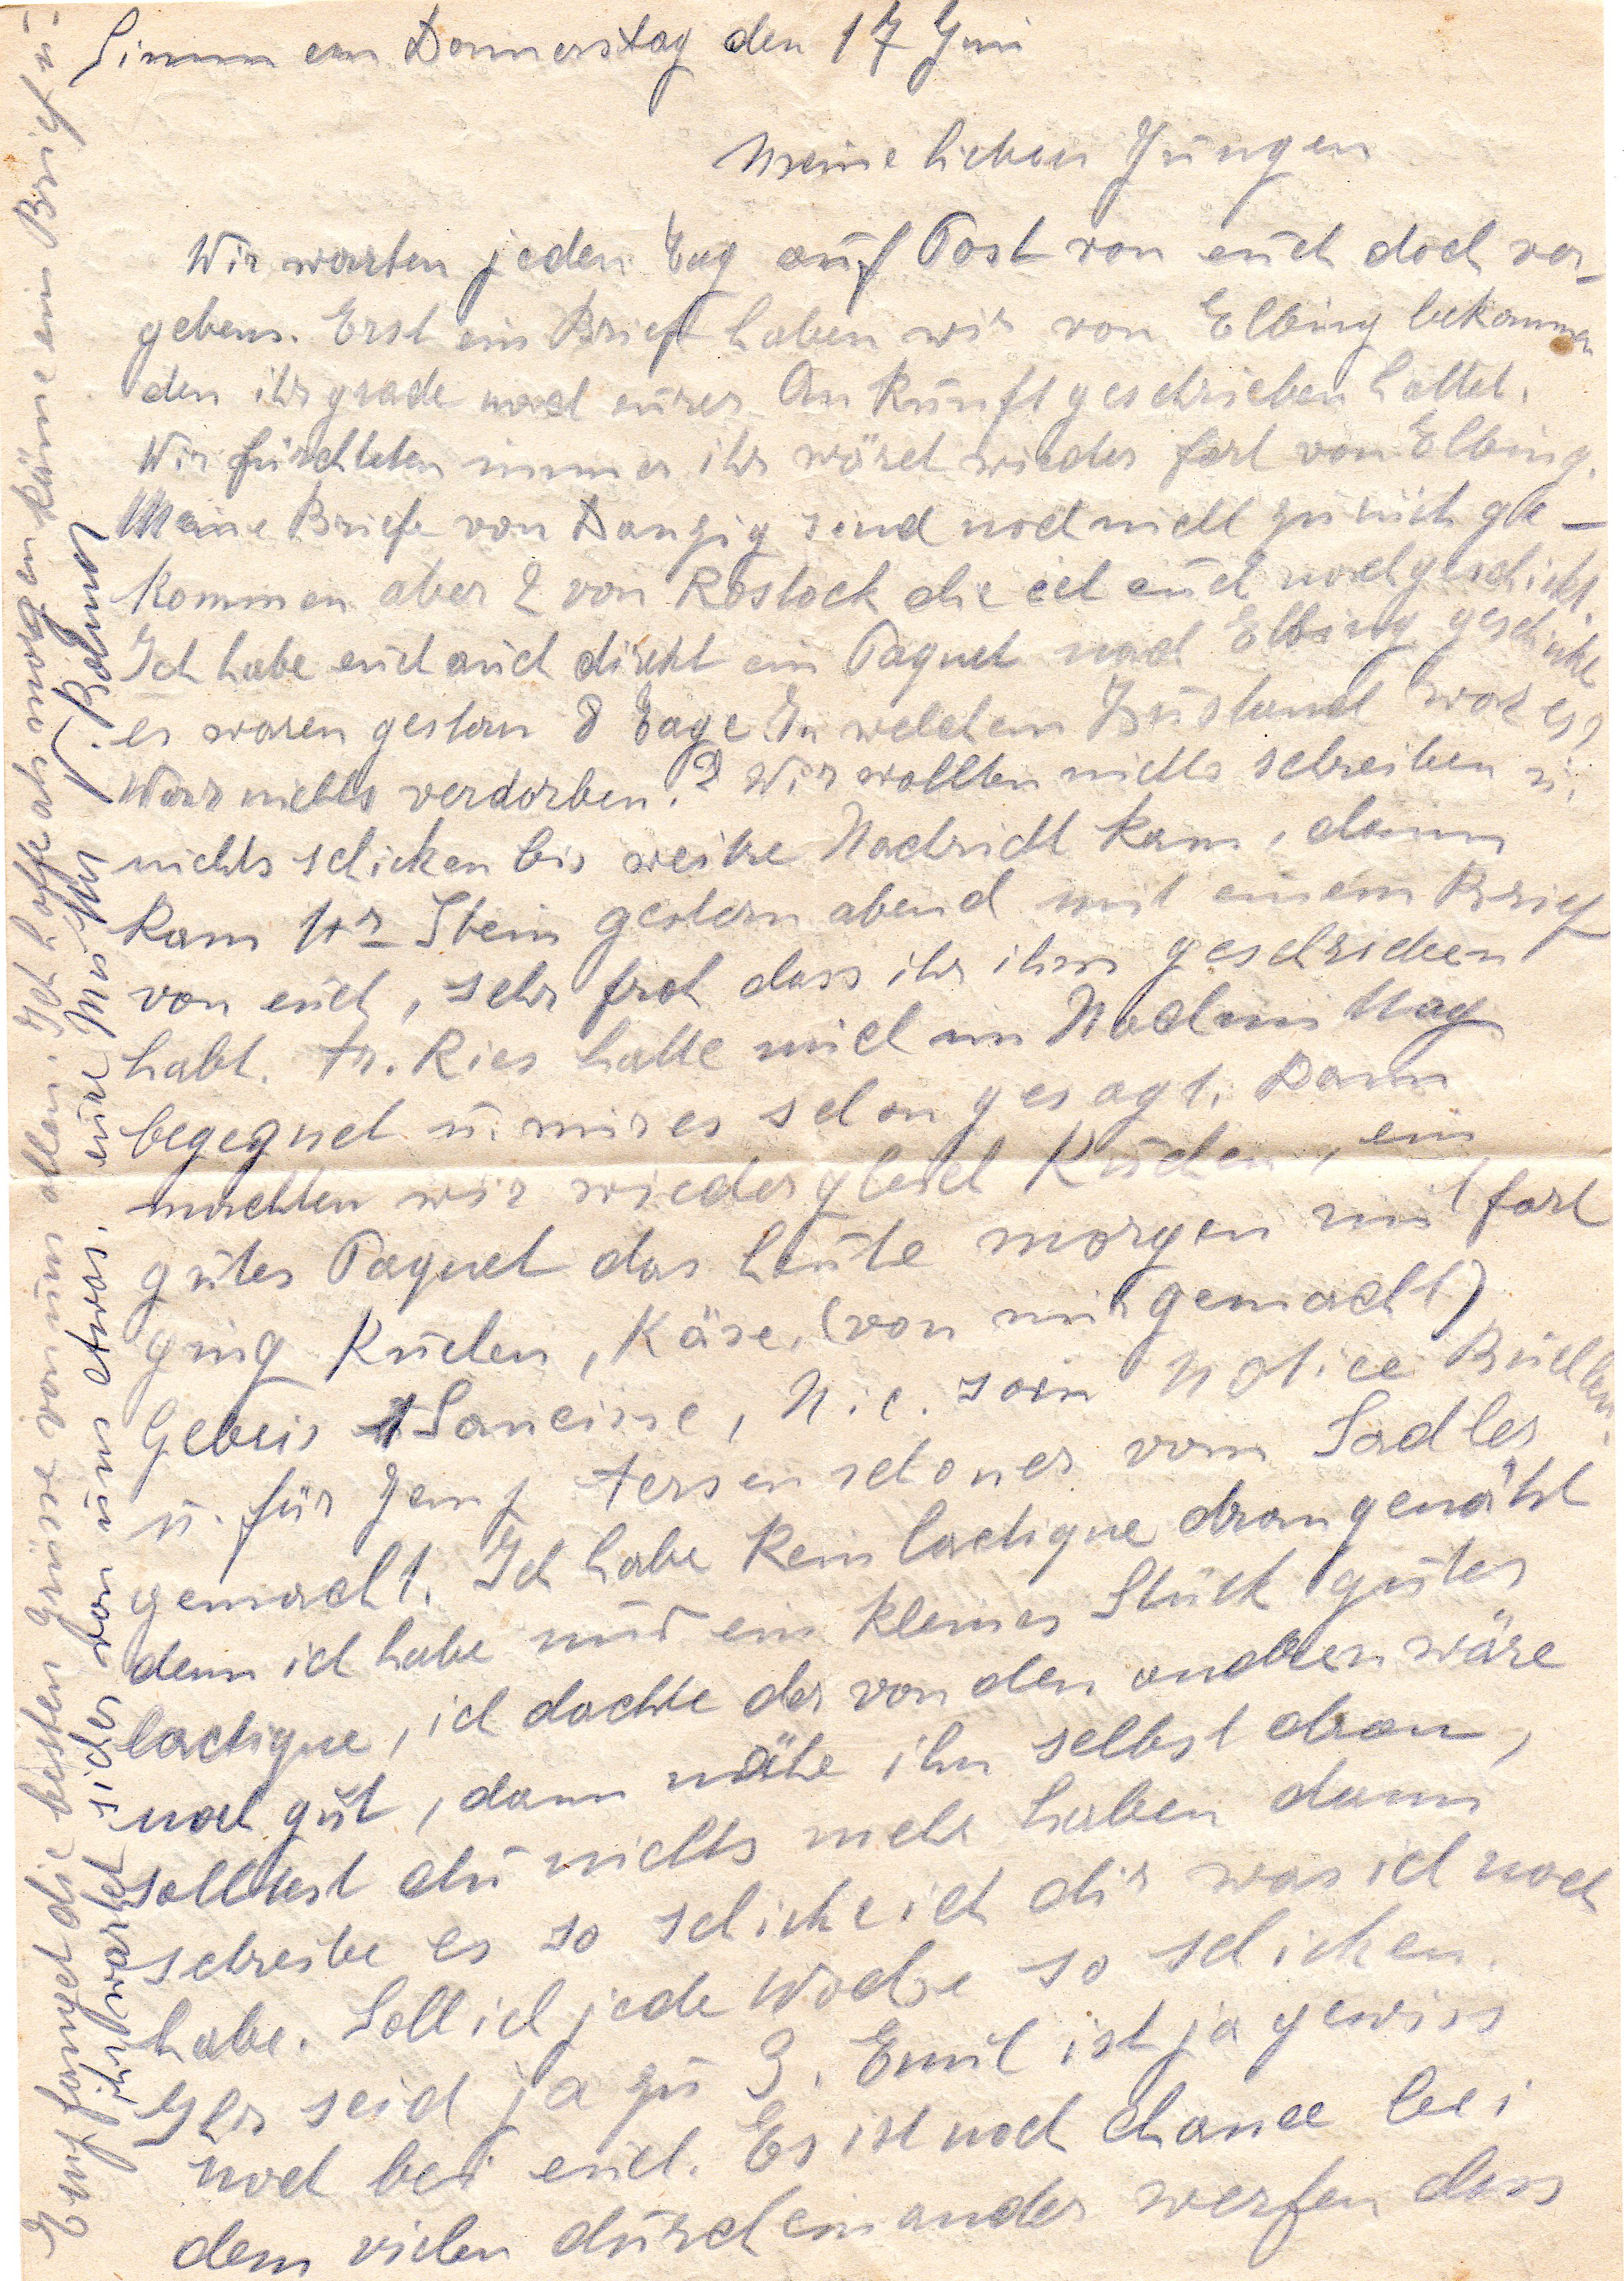 am Donnerstag den 17 Juni
Meine lieben Jungen
Wir warten jeden Tag auf Post von euch doch ver-
gebens. Erst ein Brief haben wir von Elbing bekommen
den ihr grade nach eurer Ankunft geschrieben hattet.
Wir fürchteten immer ihr wäret wieder fort von Elbing.
Meine Briefe von Danzig sind noch nicht zurück ge-
kommen aber 2 von Rostock die ich euch nachgeschickt.
Ich habe euch auch direkt ein Paquet nach Elbing geschickt
es waren gestern 8 Tage In welchem Zustand war es?
War nichts verdorben? Wir wollten nichts schreiben u.
nichts schicken bis weitre Nachricht kam, dann
kam Hr Stein gestern abend mit einem Brief
von euch, sehr froh dass ihr ihm geschrieben
habt. Fr. Ries hatte mich am Nachmittag
begegnet u. mir es schon gesagt. Dann
machten wir wieder gleich Kuchen, ein
gutes Paquet das heute morgen mit fort
ging Kuchen, Käse, (von mir gemacht)
Gebeis 1 Saucisse, N.c. sein Notice Büchlein
u. für Jemp Fersenschoner vom Sadler
gemacht. Ich habe kein lactique drangenäht
denn ich habe nur ein kleines Stück gutes
lactique, ich dachte der von den andren wäre
noch gut, dann nähe ihn selbst dran,
solltest du nichts mehr haben dann
schreibe es so schicke ich dir was ich noch
habe. Soll ich jede Woche so schicken.
Ihr seid ja zu 3. Emil ist ja gewiss
noch bei euch. Es ist noch chance bei
dem vielen durcheinander werfen dass
Empfanget die besten Grüsse von uns allen. Ich hoffe als morgen käme ein Brief u.
ihr wartet sicher von uns etwas. eure Mutter